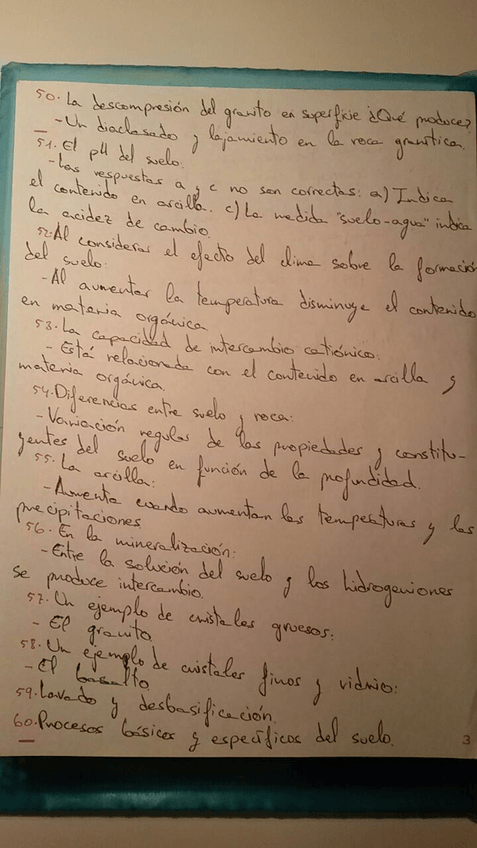 50. La descompresión del granito en superficie ¿Qué produce?
- Un diaclasado y lajamiento en la roca granítica.
51. El pH del suelo.
- Las respuestas a y c no son correctas: a) Indica
el contenido en arcilla. c) La medida "suelo-agua" indica
la acidez de cambio.
52. Al considerar el efecto del clima sobre la formación
del suelo.
- Al aumentar la temperatura disminuye el contenido
en materia orgánica
53. La capacidad de intercambio catiónico:
- Está relacionada con el contenido en arcilla y
materia orgánica.
54. Diferencias entre suelo y roca:
- Variación regular de las propiedades y constitu-
yentes del suelo en función de la profundidad.
55. La arcilla:
- Aumenta cuando aumentan las temperaturas y las
precipitaciones
56. En la mineralización:
- Entre la solución del suelo y los hidrogeniones
se produce intercambio.
57. Un ejemplo de cristales gruesos:
- El granito
58. Un ejemplo de cristales finos y vidrio:
- El basalto
59. Lavado y desbasificación.
60. Procesos básicos y específicos del suelo.
3